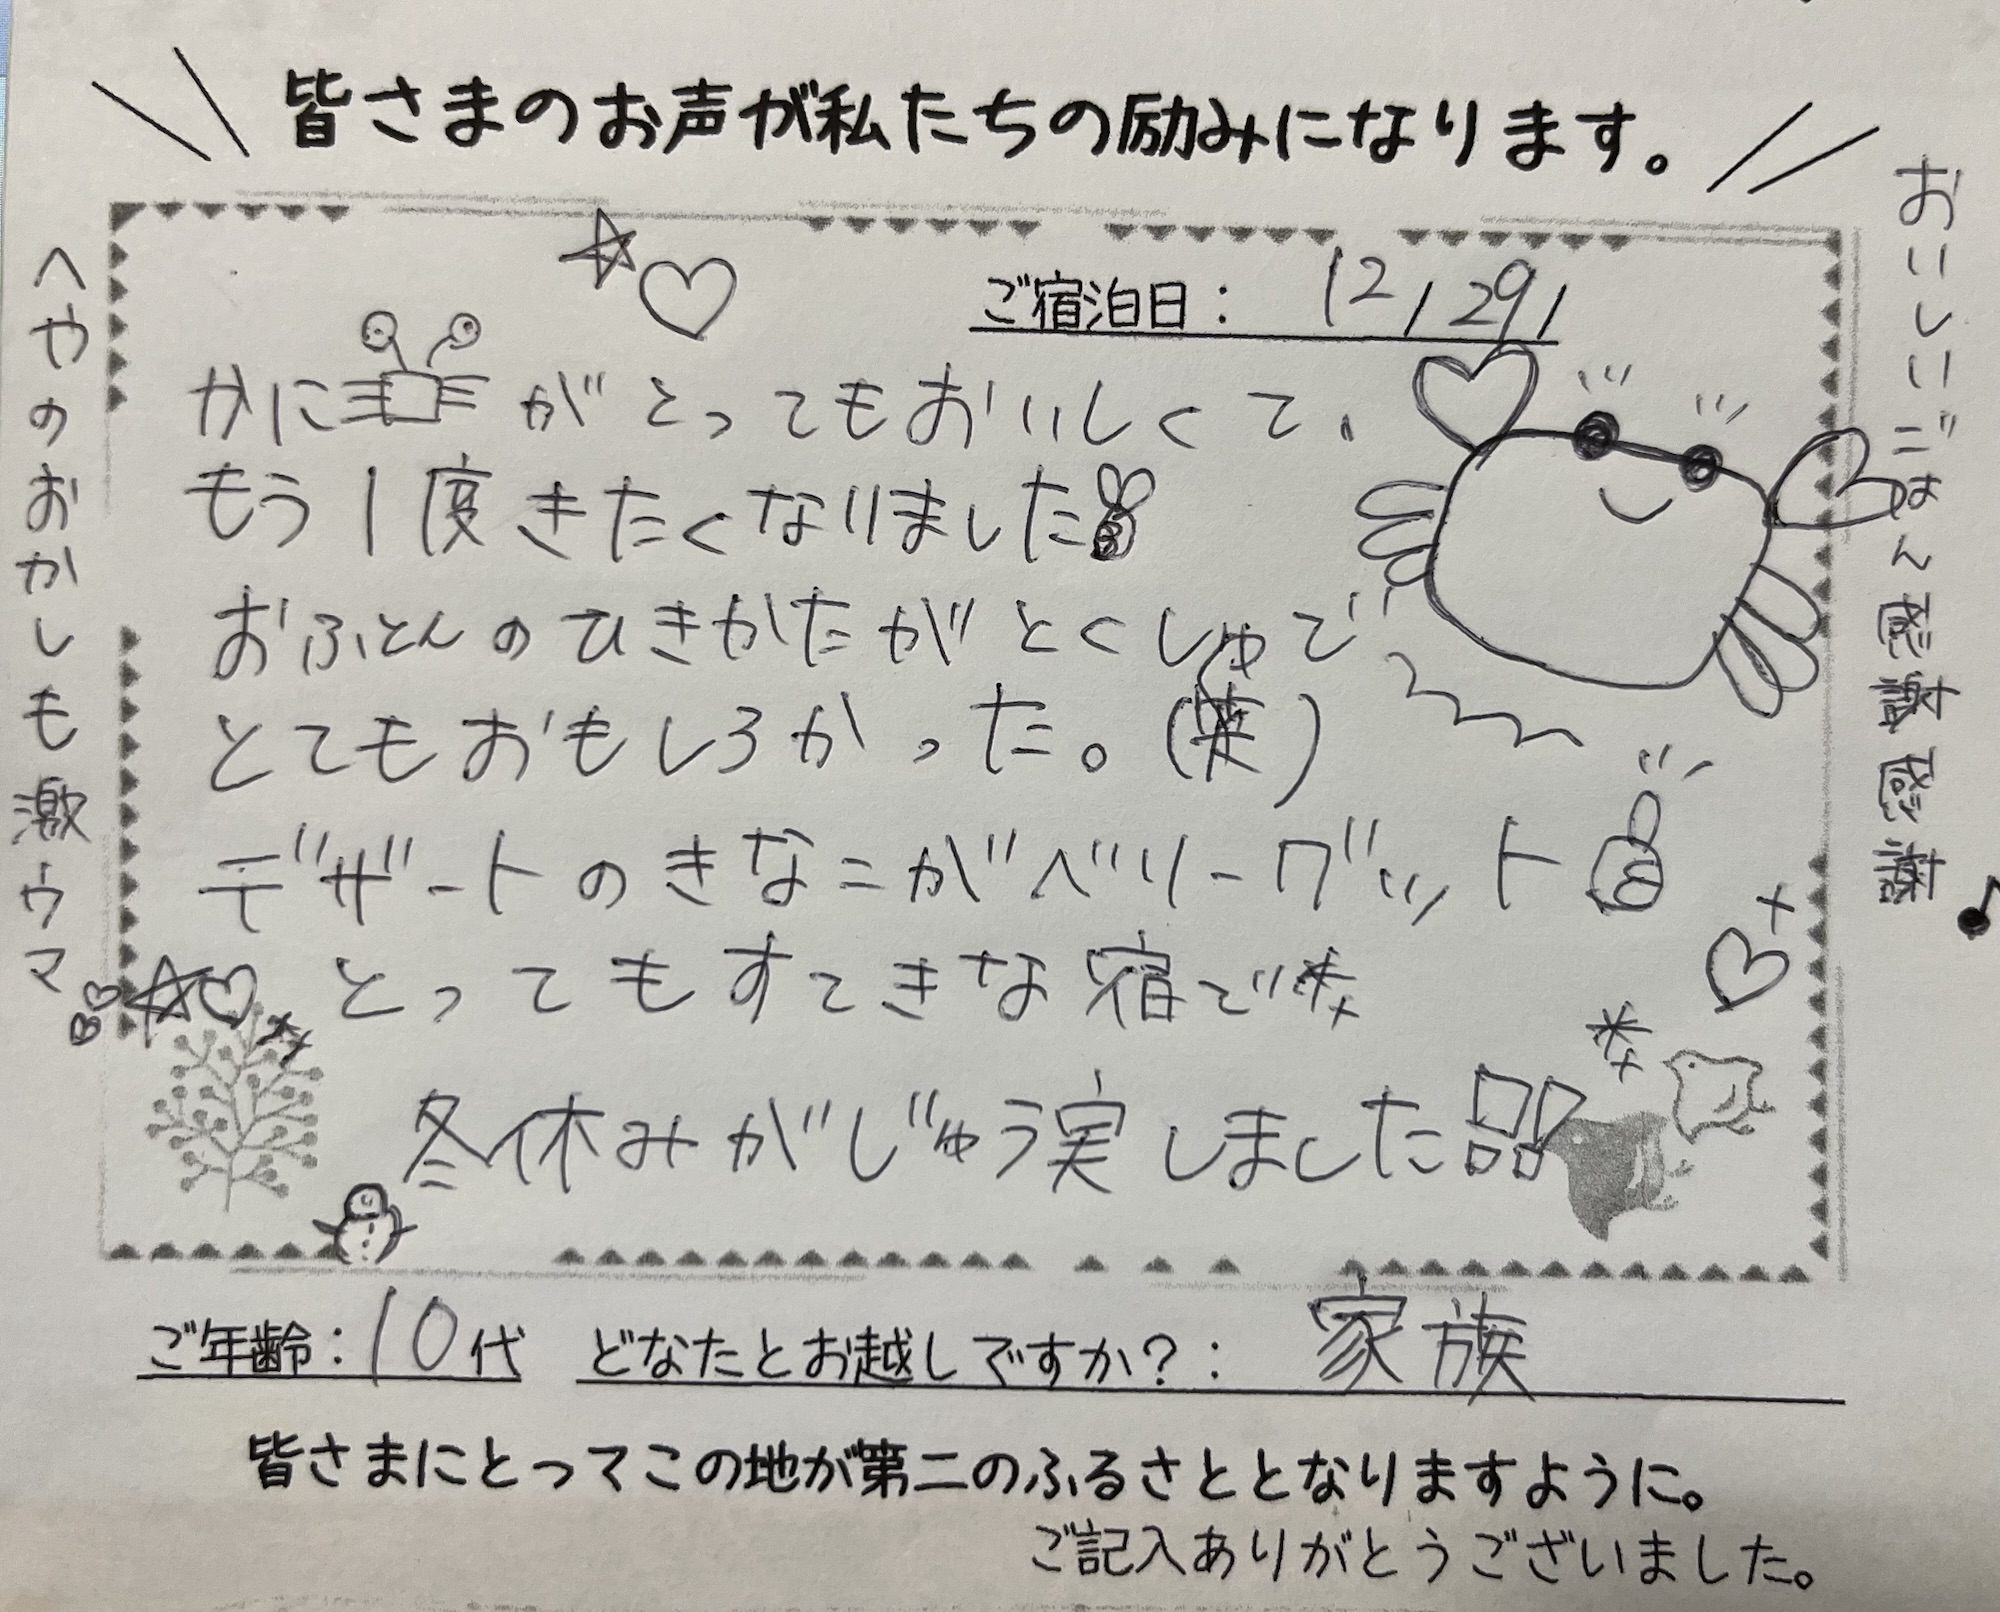 皆さまのお声が私たちの励みになります。
ご宿泊日： 12/29/
かにがとってもおいしくて、
もう1度きたくなりました
おふとんのひきかたがとくしゅで
とてもおもしろかった。(笑)
デザートのきなこがベリーグッット
とってもすてきな宿で
冬休みがじゅう実しました!!
へやのおかしも激ウマ
おいしいごはん感謝感謝♪
ご年齢：10代 どなたとお越しですか？： 家族
皆さまにとってこの地が第二のふるさととなりますように。
ご記入ありがとうございました。